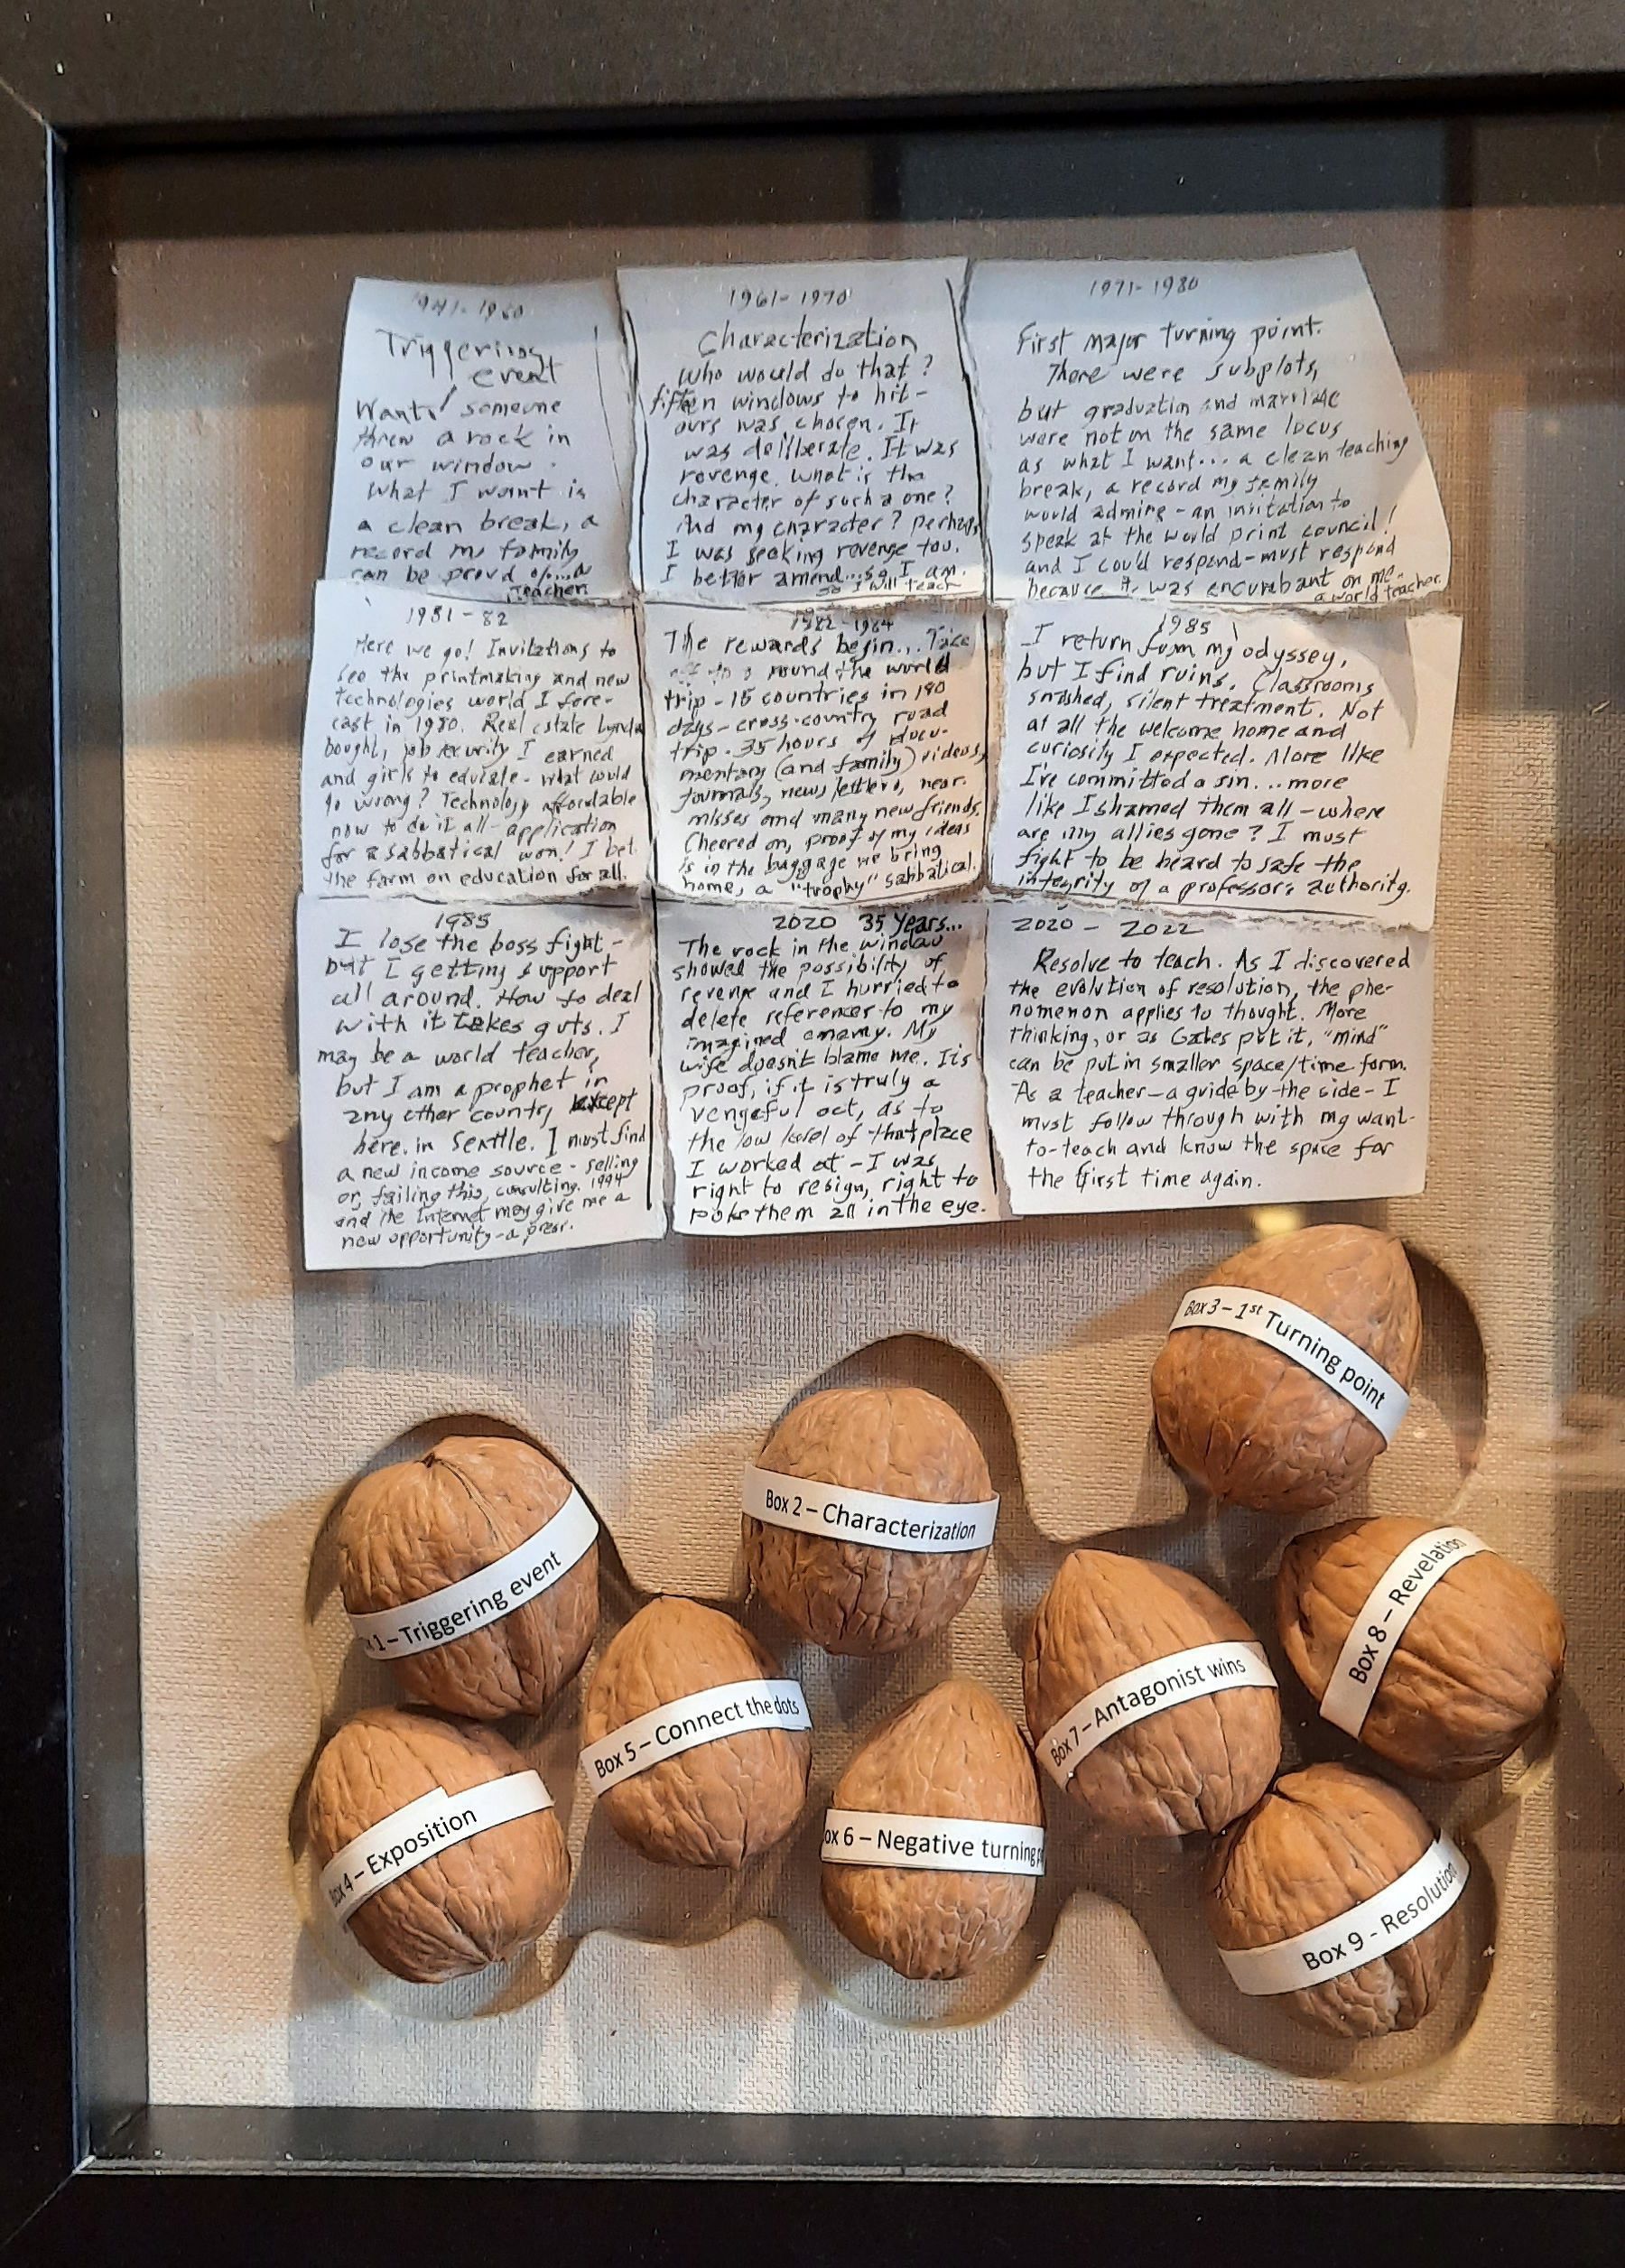 1941-1960
Triggering
event
Want! someone
threw a rock in
our window.
What I want is
a clean break, a
record my family
can be proud of....a
teacher.
1961-1970
Characterization
who would do that?
fifteen windows to hit-
ours was chosen. It
was deliberate. It was
revenge. what is the
character of such a one?
And my character? perhaps
I was seeking revenge too.
I better amend...so I am.
so I will teach
1971-1980
First major turning point.
There were subplots,
but graduation and marriage
were not on the same locus
as what I want... a clean teaching
break, a record my family
would admire - an invitation to
speak at the world print council!
and I could respond-must respond
because it was encumbant on me-
a world teacher.
1981-82
Here we go! Invitations to
see the printmaking and new
technologies world I fore-
cast in 1980. Real estate Lynda
bought, job security I earned
and girls to educate - what could
go wrong? Technology affordable
now to do it all - application
for a sabbatical won! I bet
the farm on education for all.
1982-1984
The rewards begin... Take
off to a round the world
trip - 15 countries in 180
days - cross-country road
trip. 35 hours of docu-
mentary (and family) videos,
journals, news letters, near
misses and many new friends.
Cheered on, proof of my ideas
is in the baggage we bring
home, a "trophy" sabbatical.
1985
I return from my odyssey,
but I find ruins. Classrooms
smashed, silent treatment. Not
at all the welcome home and
curiosity I expected. More like
I've committed a sin...more
like I shamed them all - where
are my allies gone? I must
fight to be heard to safe the
integrity of a professor's authority.
1985
I lose the boss fight -
but I getting support
all around. How to deal
with it takes guts. I
may be a world teacher,
but I am a prophet in
any other country except
here, in Seattle. I must find
a new income source - selling
or, failing this, consulting. 1994
and the Internet may give me a
new opportunity - a
2020 35 years...
The rock in the window
showed the possibility of
revenge and I hurried to
delete references to my
imagined enemy. My
wife doesn't blame me. It's
proof, if it is truly a
vengeful act, as to
the low level of that place
I worked at - I was
right to resign, right to
poke them all in the eye.
2020 - 2022
Resolve to teach. As I discovered
the evolution of resolution, the phe-
nomenon applies to thought. More
thinking, or as Gates put it, "mind"
can be put in smaller space/time form.
As a teacher - a guide by-the side - I
must follow through with my want-
to-teach and know the space for
the first time again.
Box 3 – 1st Turning point
Box 2 – Characterization
x 1 – Triggering event
Box 8 – Revelation
Box 5 – Connect the dots
Box 7 – Antagonist wins
Box 4 – Exposition
ox 6 – Negative turning p
Box 9 - Resolution